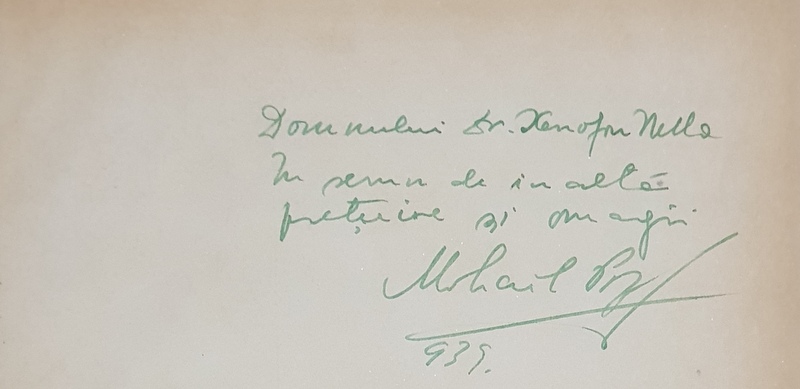 Domnului Dr. Xenofon Nella
În semn de înaltă
prețuire și omagii
Mihail Pop
939.